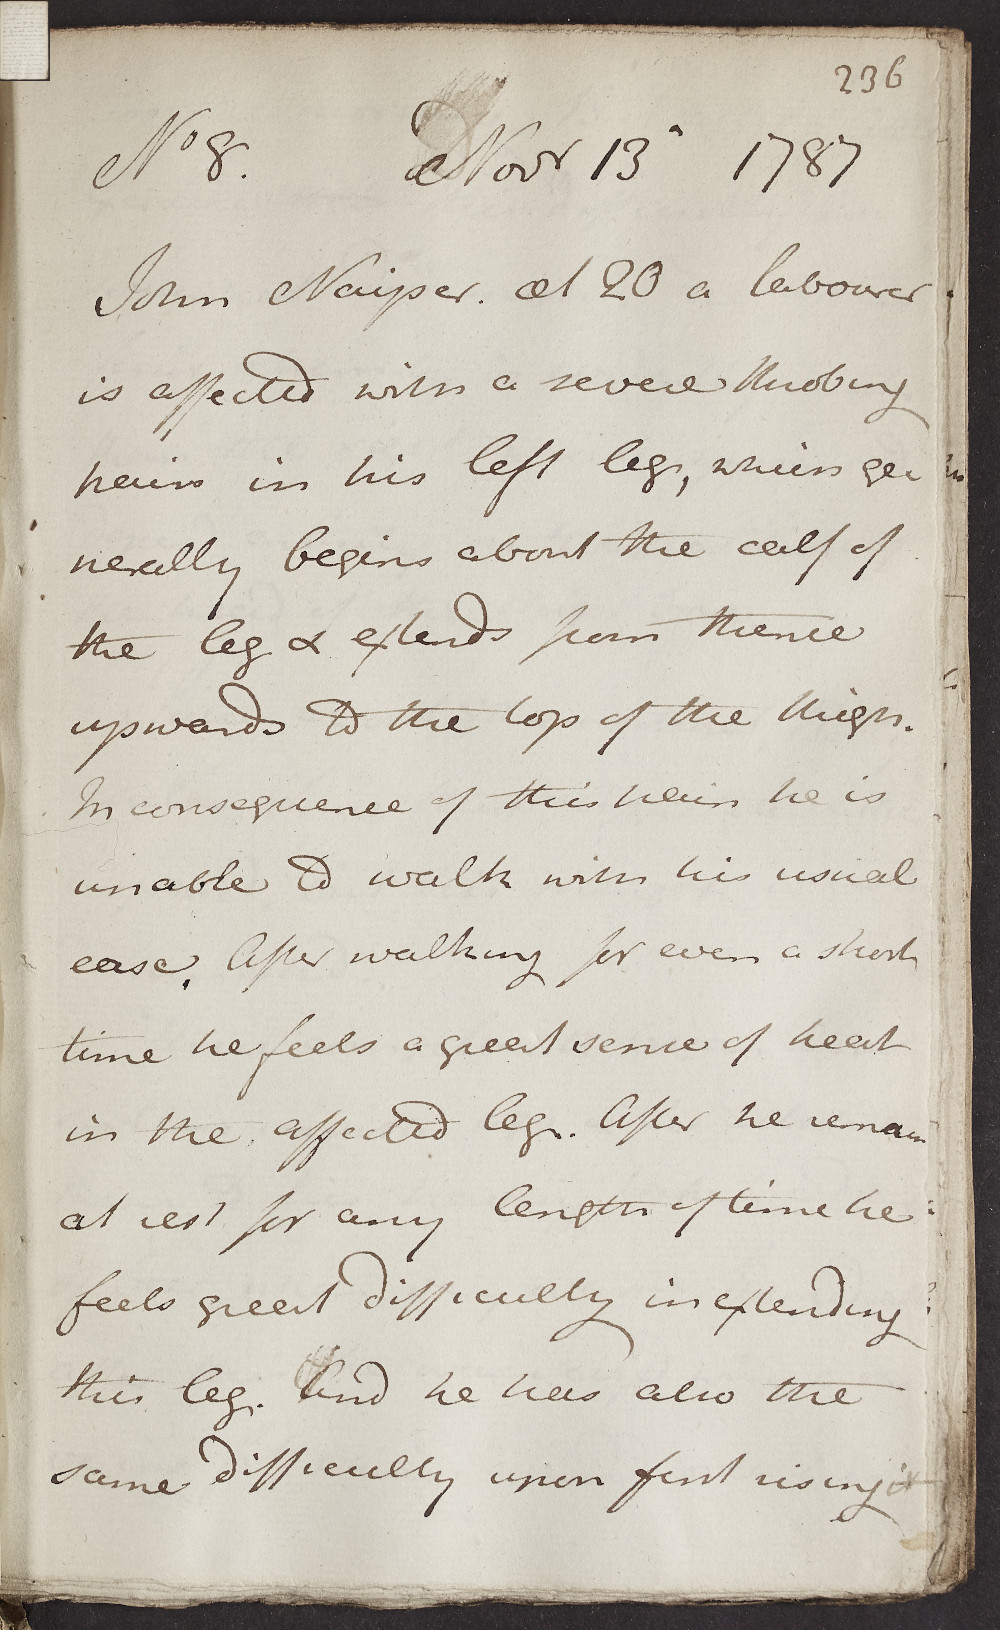 236
No 8. Novr 13 1787
John Naiper. æt 20 a labourer
is affected with a severe throbing
pain in his left leg, which ge
nerally begins about the calf of
the leg & extends from thence
upwards to the top of the thigh.
In consequence of this pain he is
unable to walk with his usual
ease. After walking for even a short
time he feels a great sense of heat
in the affected leg. After he remain
at rest for any length of time he
feels great difficulty in extending
this leg. And he has also the
same difficulty upon first rising